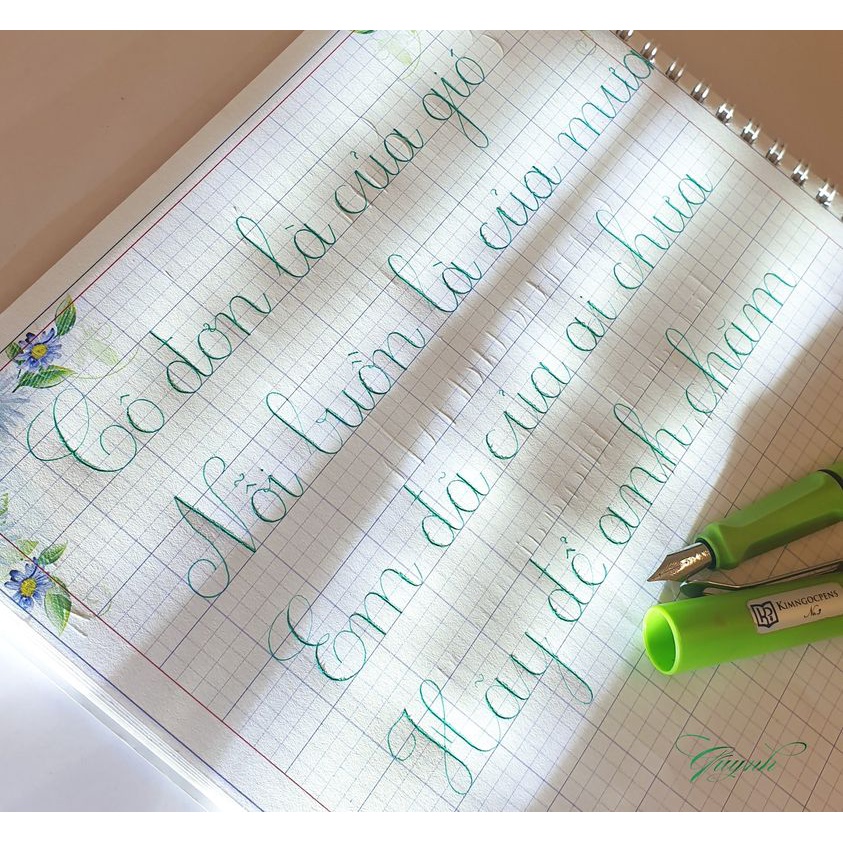 Cô đơn là của gió
Nỗi buồn là của mưa
Em đã của ai chưa
Hãy để anh chăm
KIMNGOCPENS
No.1
Quỳnh